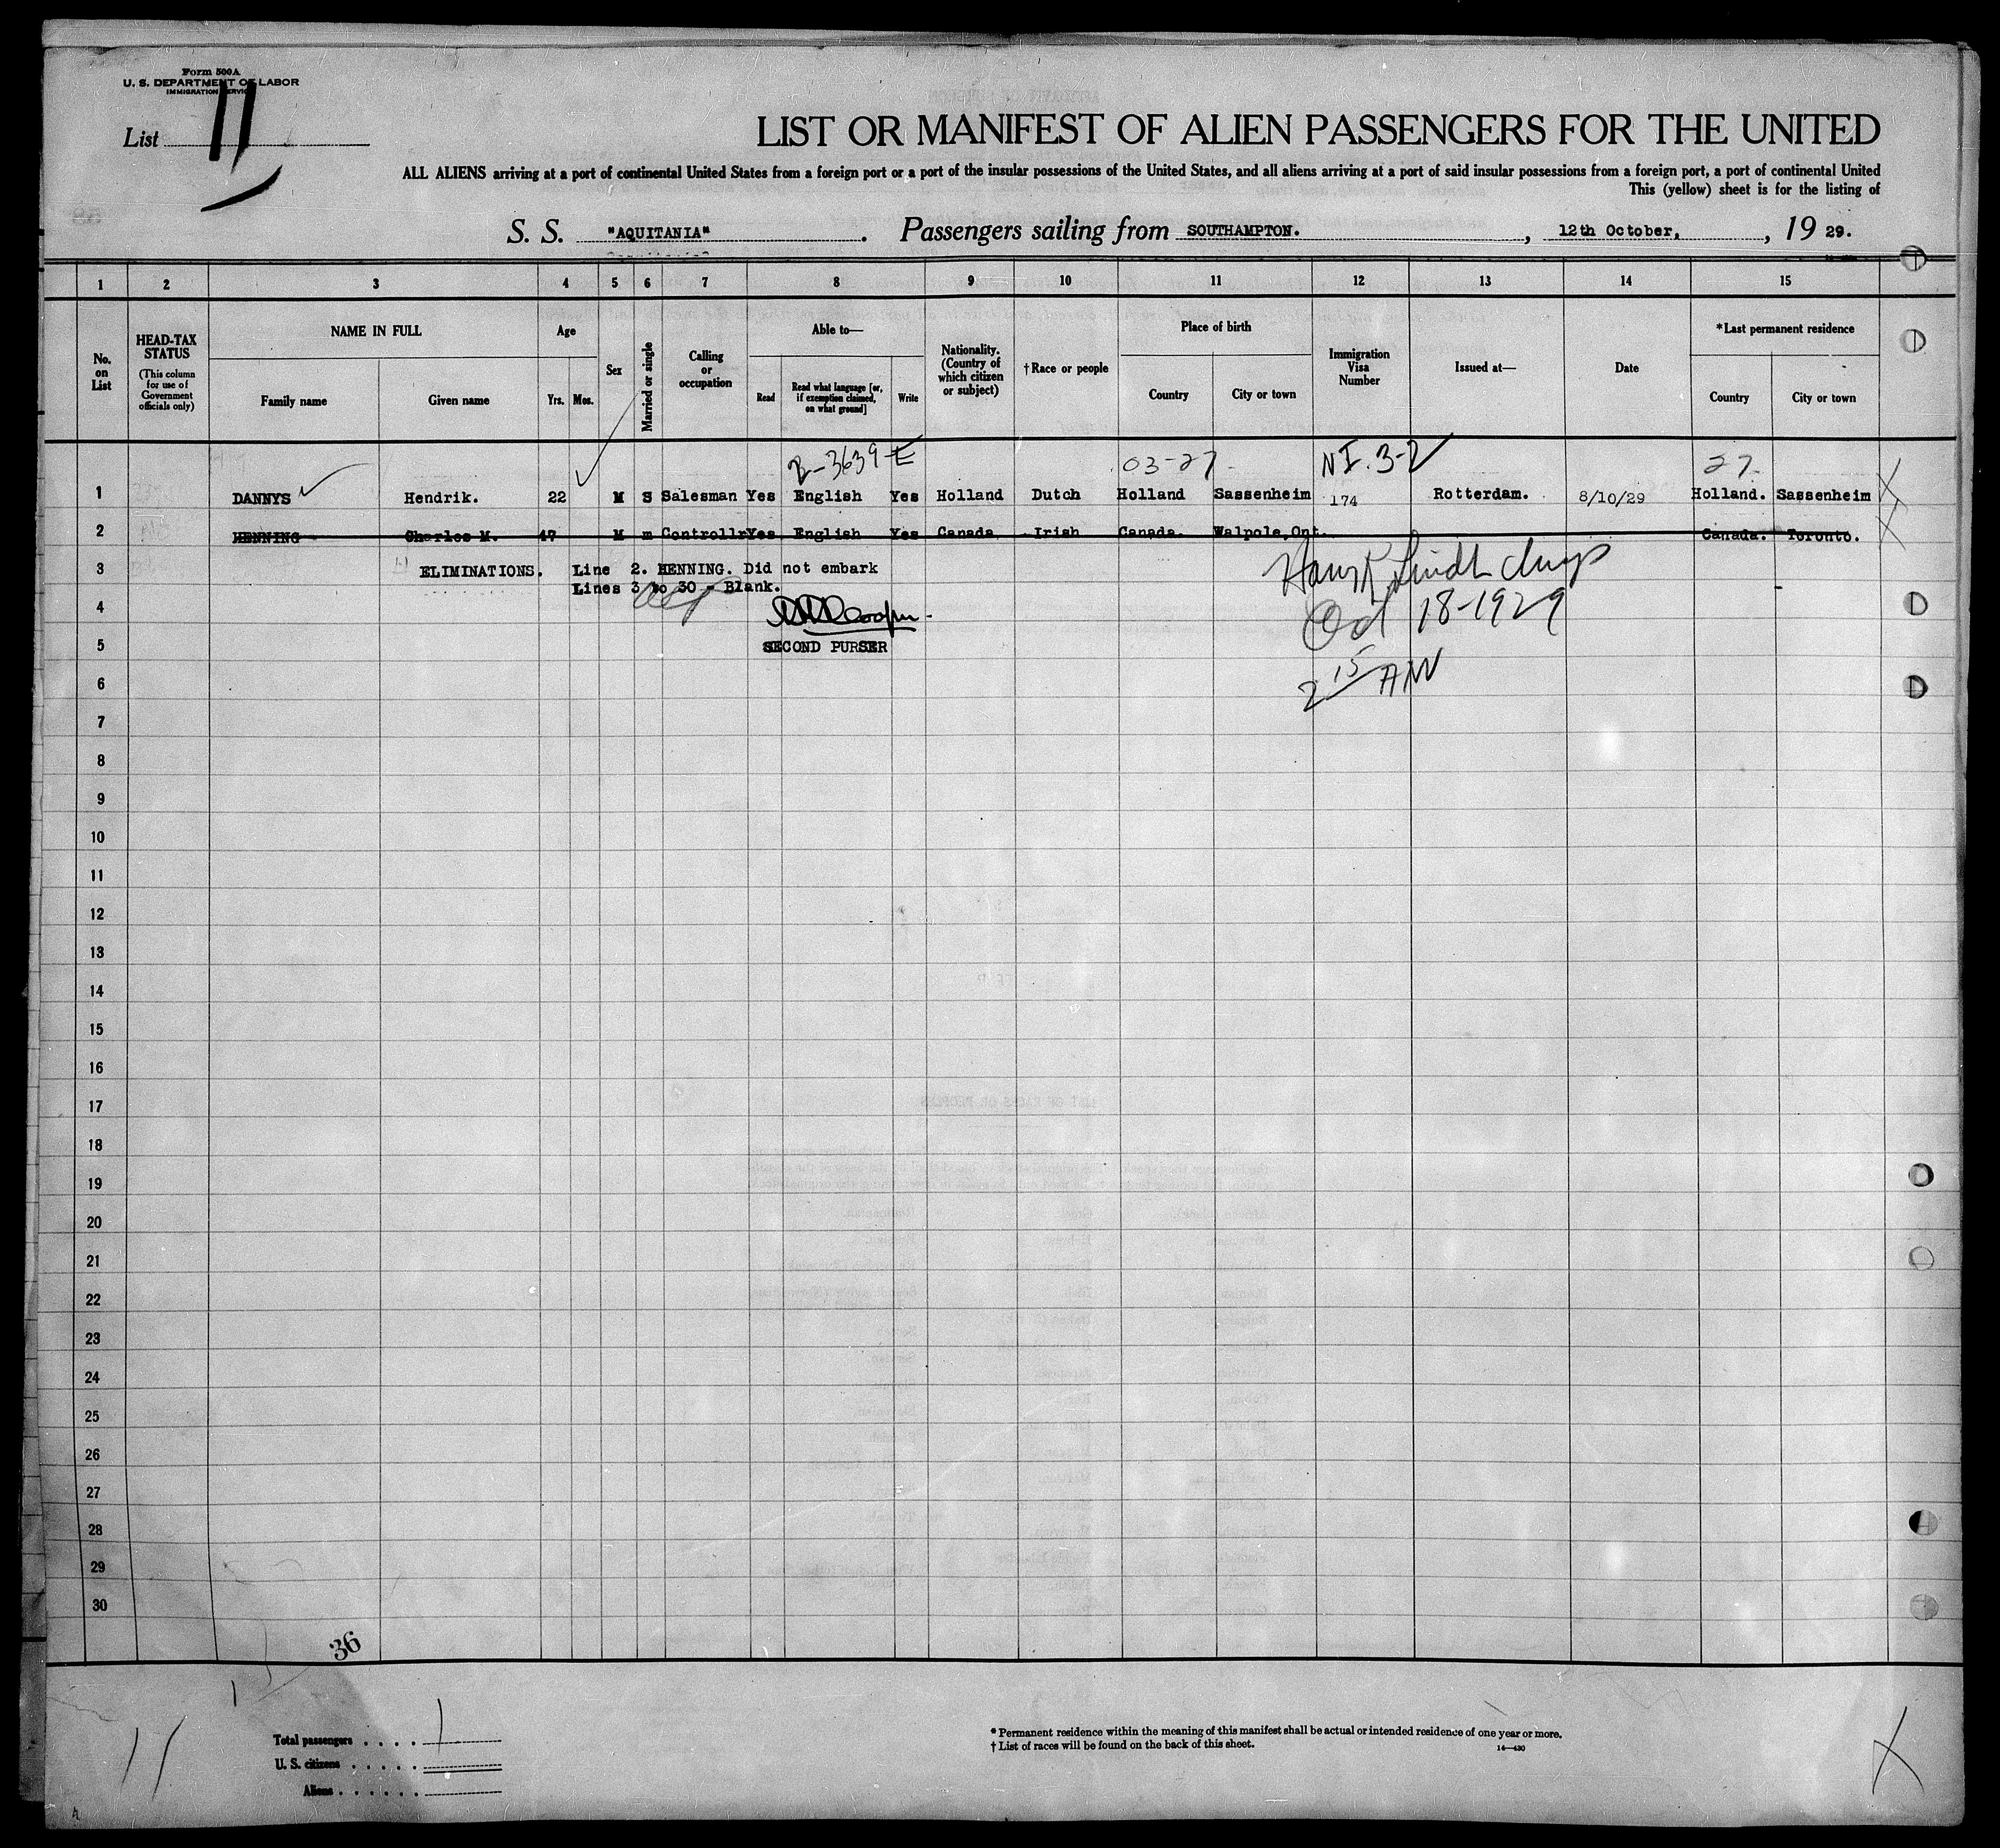 Form 500A
U. S. DEPARTMENT OF LABOR
IMMIGRATION SERVICE
List 11
LIST OR MANIFEST OF ALIEN PASSENGERS FOR THE UNITED
ALL ALIENS arriving at a port of continental United States from a foreign port or a port of the insular possessions of the United States, and all aliens arriving at a port of said insular possessions from a foreign port, a port of continental United
This (yellow) sheet is for the listing of
S. S. "AQUITANIA" . Passengers sailing from SOUTHAMPTON. , 12th October, , 19 29.
1 2 3 4 5 6 7 8 9 10 11 12 13 14 15
No. on List
HEAD-TAX STATUS (This column for use of Government officials only)
NAME IN FULL
Family name Given name
Age
Yrs. Mos.
Sex
Married or single
Calling or occupation
Able to—
Read Read what language [or, if exemption claimed, on what ground] Write
Nationality. (Country of which citizen or subject)
† Race or people
Place of birth
Country City or town
Immigration Visa Number
Issued at—
Date
*Last permanent residence
Country City or town
2-3639-E 03-27 NI. 3-2 27
1 DANNYS Hendrik. 22 M S Salesman Yes English Yes Holland Dutch Holland Sassenheim 174 Rotterdam. 8/10/29 Holland. Sassenheim
2 HENNING Charles M. 47 M m Controllr Yes English Yes Canada Irish Canada. Walpole, Ont. Canada. Toronto.
3 ELIMINATIONS. Line 2. HENNING. Did not embark
Lines 3 to 30 - Blank.
4 Oct 18-1929
5 SECOND PURSER
6 2 15 AM
7
8
9
10
11
12
13
14
15
16
17
18
19
20
21
22
23
24
25
26
27
28
29
30
36
11
Total passengers . . . . 1
U. S. citizens . . . . .
Aliens . . . . . .
* Permanent residence within the meaning of this manifest shall be actual or intended residence of one year or more.
† List of races will be found on the back of this sheet.
14—430